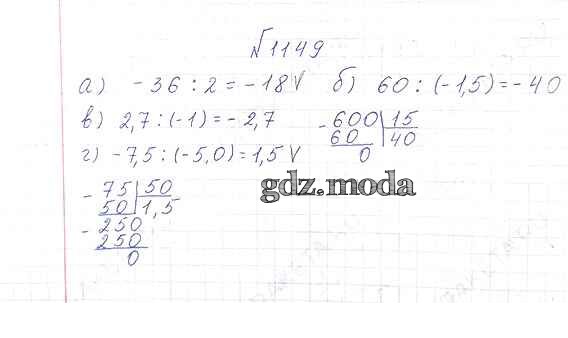 №1149
а) -36 : 2 = -18 V б) 60 : (-1,5) = -40
в) 2,7 : (-1) = -2,7
- 600 | 15
60 | 40
0
г) -7,5 : (-5,0) = 1,5 V
- 75 | 50
50 | 1,5
- 250
250
0
gdz.moda